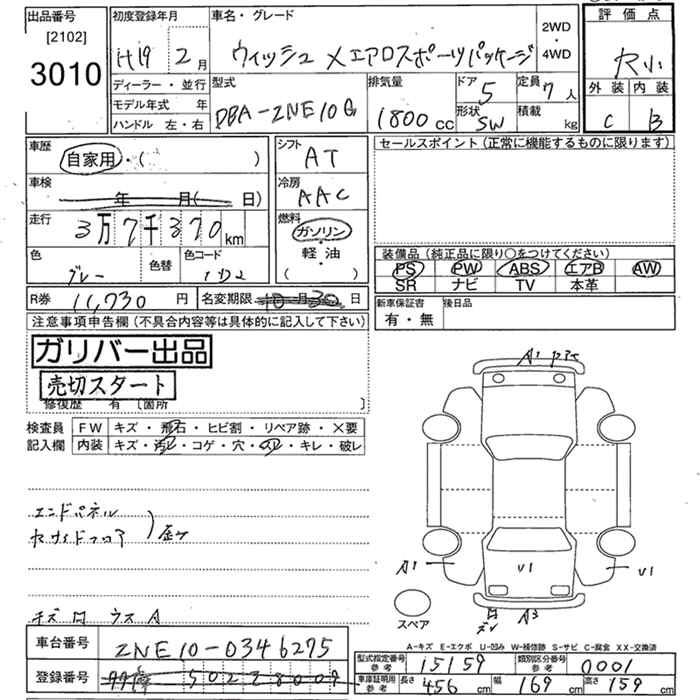 出品番号 [2102] 3010
初度登録年月 H19 2月
車名・グレード ウィッシュ Xエアロスポーツパッケージ 2WD・4WD
評価点
外装 内装
C B
ディーラー・並行
モデル年式 年
ハンドル 左・右
型式 DBA-ZNE10G
排気量 1800cc
ドア 5
形状 SW
定員 7人
積載 kg
車歴 自家用・( )
車検 年 月( 日)
走行 3万7千370km
色 グレー 色替 色コード
シフト AT
冷房 AAC
燃料 ガソリン・軽油 ( )
R券 11,730円 名変期限 10月30日
セールスポイント(正常に機能するものに限ります)
装備品(純正品に限り○をつけてください)
PS PW ABS エアB AW
SR ナビ TV 本革
新車保証書 有・無
後日品
注意事項申告欄(不具合内容等は具体的に記入して下さい)
ガリバー出品
売切スタート
修復歴 有 [箇所 ]
検査員記入欄 FW キズ・飛石・ヒビ割・リペア跡・×要
内装 キズ・汚レ・コゲ・穴・スレ・キレ・破レ
エンドパネル
A1
A1 U1 U1
A3
スペア
A-キズ E-エクボ U-凹み W-補修跡 S-サビ C-腐食 XX-交換済
車台番号 ZNE10-0346275
登録番号
型式指定番号 参考 15157 類別区分番号 参考 0001
車庫証明用 参考 長さ 456cm 幅 169cm 高さ 159cm